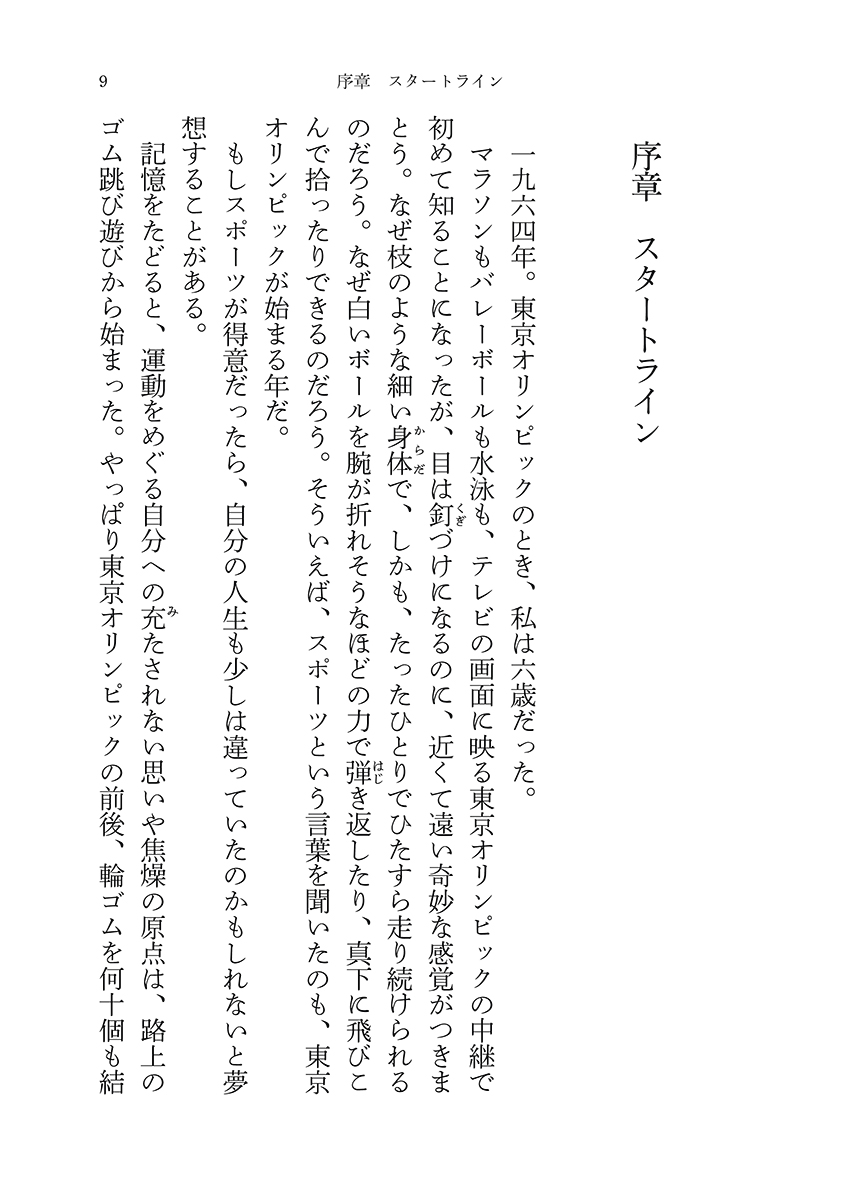 9
序章　スタートライン
序章　スタートライン
一九六四年。東京オリンピックのとき、私は六歳だった。
マラソンもバレーボールも水泳も、テレビの画面に映る東京オリンピックの中継で
初めて知ることになったが、目は釘づけになるのに、近くて遠い奇妙な感覚がつきま
とう。なぜ枝のような細い身体で、しかも、たったひとりでひたすら走り続けられる
のだろう。なぜ白いボールを腕が折れそうなほどの力で弾き返したり、真下に飛びこ
んで拾ったりできるのだろう。そういえば、スポーツという言葉を聞いたのも、東京
オリンピックが始まる年だ。
もしスポーツが得意だったら、自分の人生も少しは違っていたのかもしれないと夢
想することがある。
記憶をたどると、運動をめぐる自分への充たされない思いや焦燥の原点は、路上の
ゴム跳び遊びから始まった。やっぱり東京オリンピックの前後、輪ゴムを何十個も結